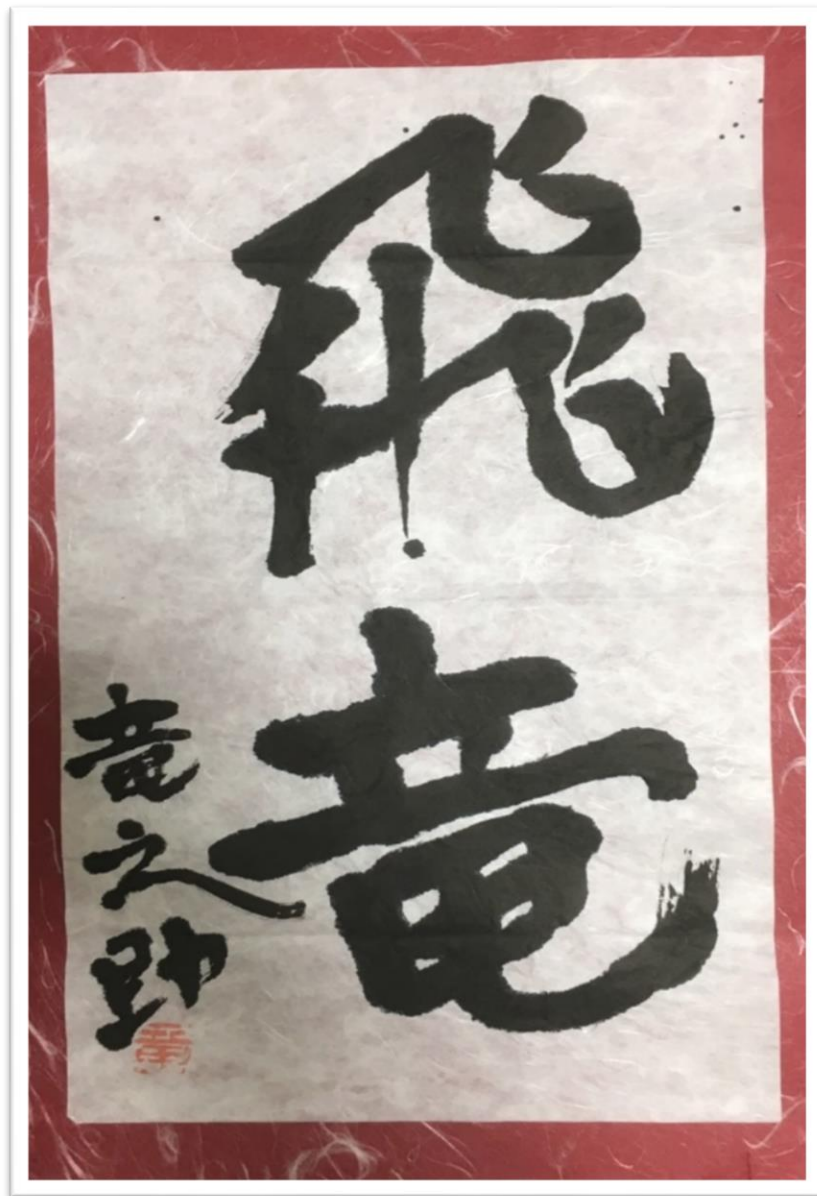 飛竜
竜之助